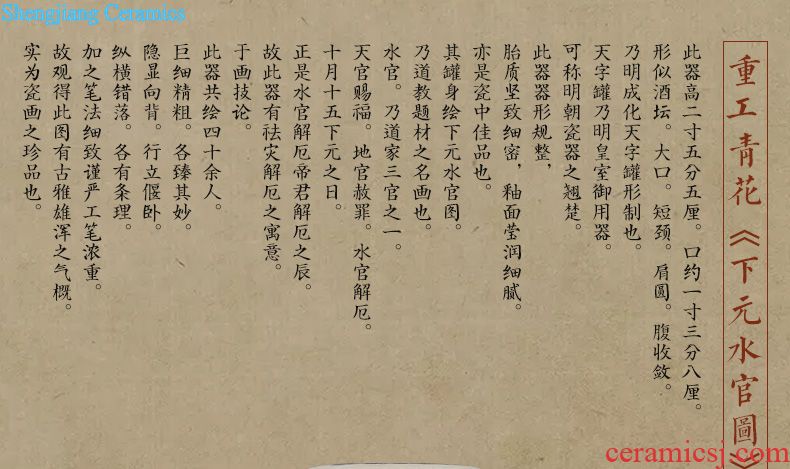 Shengjiang Ceramics
重工青花《下元水官圖》
此器高二寸五分五厘。口约一寸三分八厘。
形似酒坛。大口。短颈。肩圆。腹收敛。
乃明成化天字罐形制也。
天字罐乃明皇室御用器。
可称明朝瓷器之翘楚。
此器器形规整，
胎质坚致细密，釉面莹润细腻。
亦是瓷中佳品也。
其罐身绘下元水官图。
乃道教题材之名画也。
水官。乃道家三官之一。
天官赐福。地官赦罪。水官解厄。
十月十五下元之日。
正是水官解厄帝君解厄之辰。
故此器有祛灾解厄之寓意。
于画技论。
此器共绘四十余人。
巨细精粗。各臻其妙。
隐显向背。行立偃卧。
纵横错落。各有条理。
加之笔法细致谨严工笔浓重。
故观得此图有古雅雄浑之气概。
实为瓷画之珍品也。
ceramicsj.com